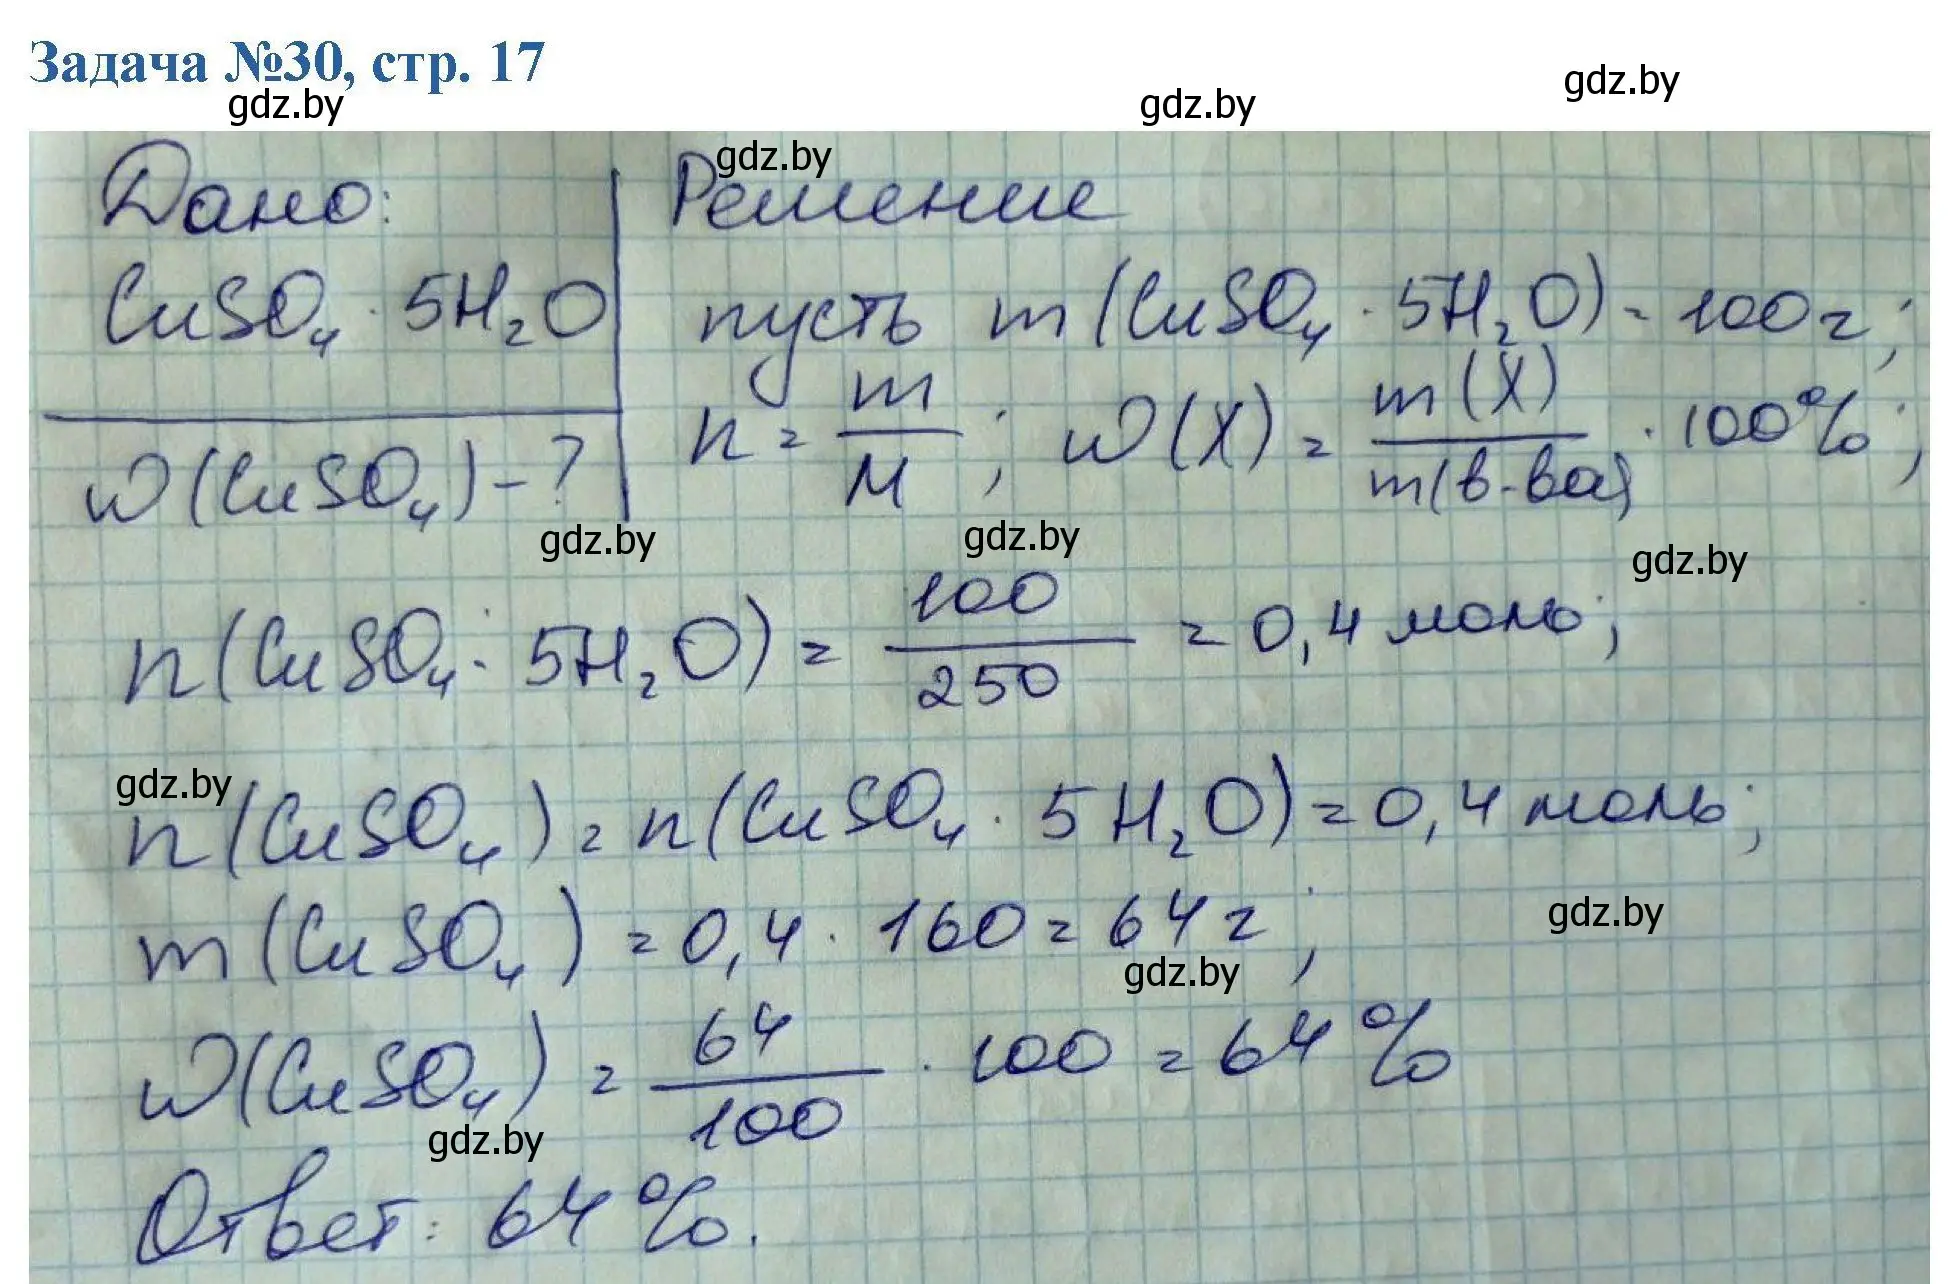 Задача №30, стр. 17
gdz.by
gdz.by
gdz.by
gdz.by
Дано:
Решение
CuSO₄ · 5H₂O
пусть m(CuSO₄ · 5H₂O) = 100г;
n = m/M ; W(X) = m(X)/m(в-ва) · 100%;
W(CuSO₄) - ?
gdz.by
gdz.by
gdz.by
n(CuSO₄ · 5H₂O) = 100/250 = 0,4 моль;
gdz.by
n(CuSO₄) = n(CuSO₄ · 5H₂O) = 0,4 моль;
m(CuSO₄) = 0,4 · 160 = 64г;
gdz.by
gdz.by
W(CuSO₄) = 64/100 · 100 = 64%
gdz.by
Ответ: 64%.